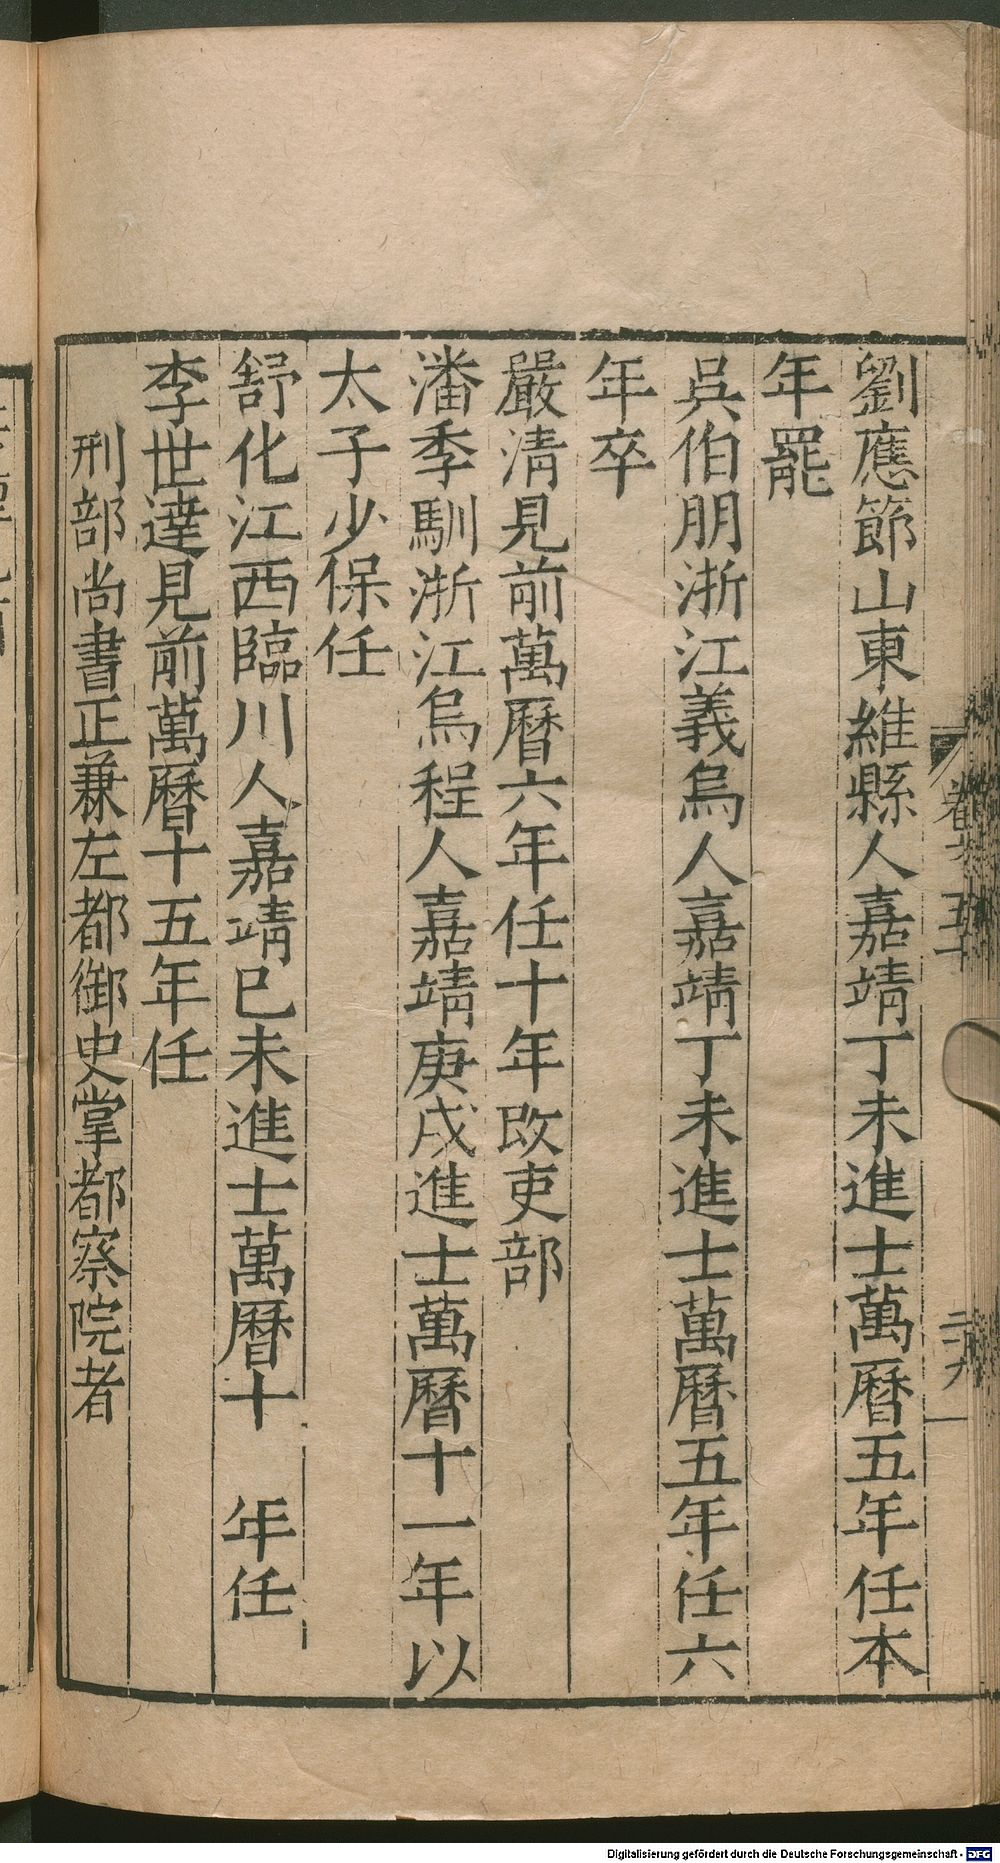 劉應節山東維縣人嘉靖丁未進士萬曆五年任本
年罷
吳伯朋浙江義烏人嘉靖丁未進士萬曆五年任六
年卒
嚴清見前萬曆六年任十年改吏部
潘季馴浙江烏程人嘉靖庚戌進士萬曆十一年以
太子少保任
舒化江西臨川人嘉靖己未進士萬曆十　年任
李世達見前萬曆十五年任
刑部尚書正兼左都御史掌都察院者
Digitalisierung gefördert durch die Deutsche Forschungsgemeinschaft - DFG